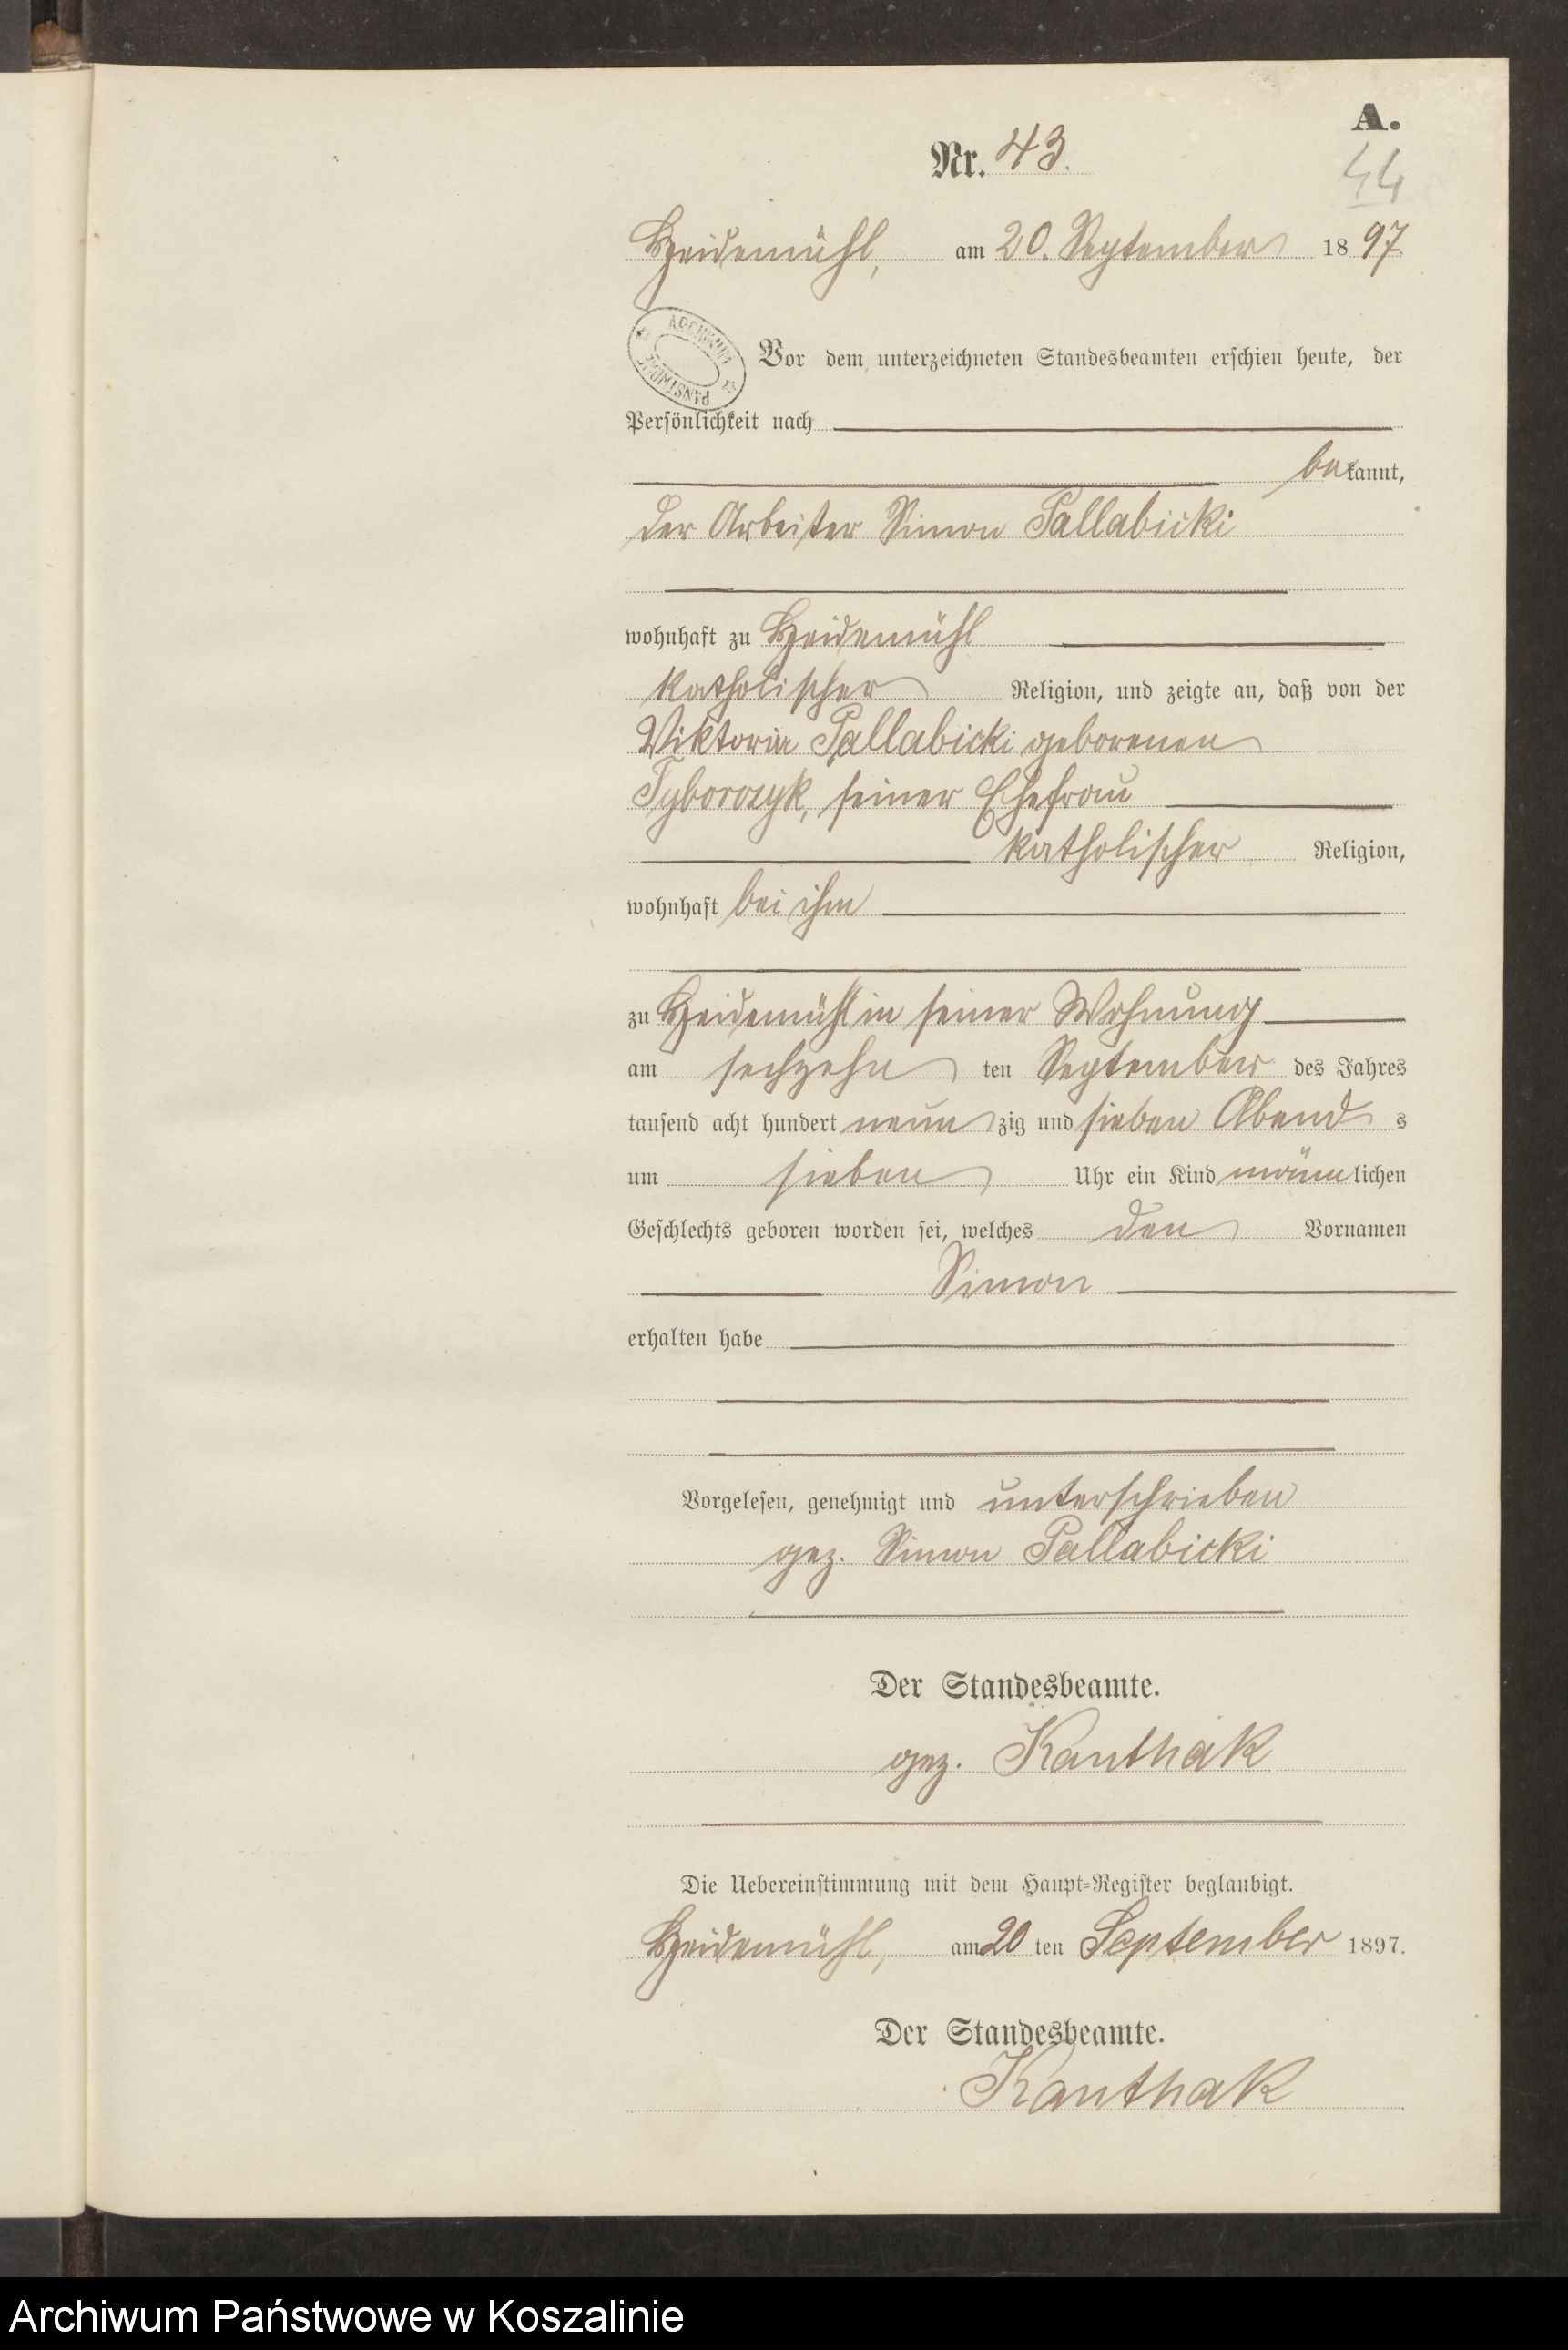 A.
Nr. 43.
44
Heidemühl, am 20. September 1897.
ARCHIWUM PAŃSTWOWE
Vor dem unterzeichneten Standesbeamten erschien heute, der
Persönlichkeit nach
bekannt,
der Arbeiter Simon Pallabicki
wohnhaft zu Heidemühl
katholischer Religion, und zeigte an, daß von der
Viktoria Pallabicki geborenen
Tyborczyk, seiner Ehefrau
katholischer Religion,
wohnhaft bei ihm
zu Heidemühl in seiner Wohnung
am sechzehn ten September des Jahres
tausend acht hundert neun zig und sieben Abend s
um sieben Uhr ein Kind männlichen
Geschlechts geboren worden sei, welches den Vornamen
Simon
erhalten habe
Vorgelesen, genehmigt und unterschrieben
gez. Simon Pallabicki
Der Standesbeamte.
gez. Kanthak
Die Uebereinstimmung mit dem Haupt-Register beglaubigt.
Heidemühl, am 20 ten September 1897.
Der Standesbeamte.
Kanthak
Archiwum Państwowe w Koszalinie